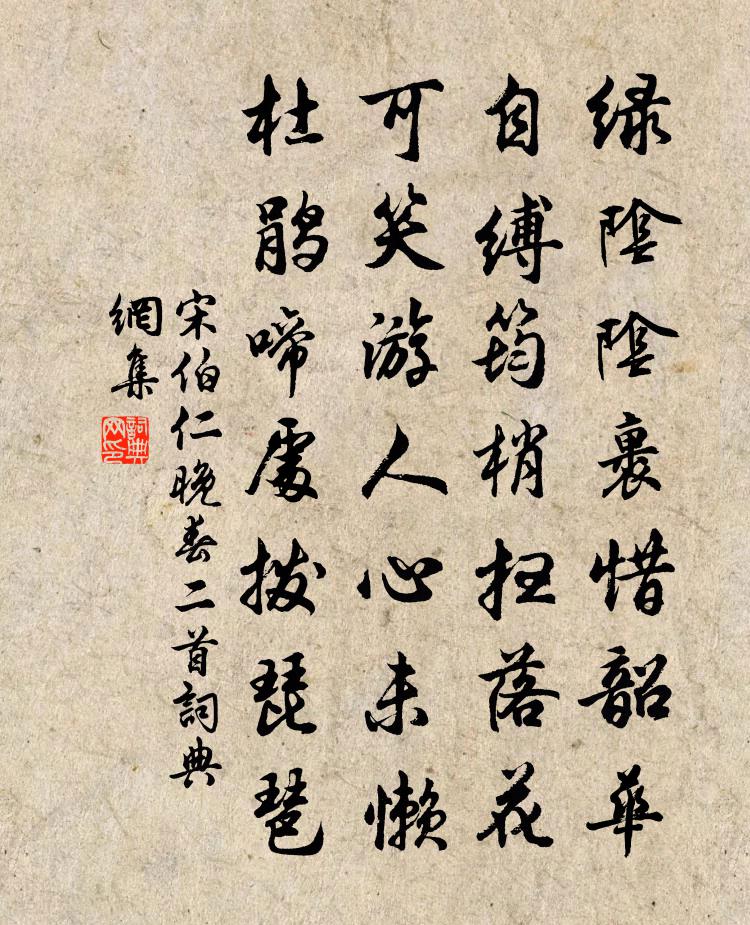 緑陰陰裏惜韶華
自縛筠梢扫落花
可笑游人心未懒
杜鹃啼處拨琵琶
宋伯仁晚春二首詞典
網集
詞典
网印